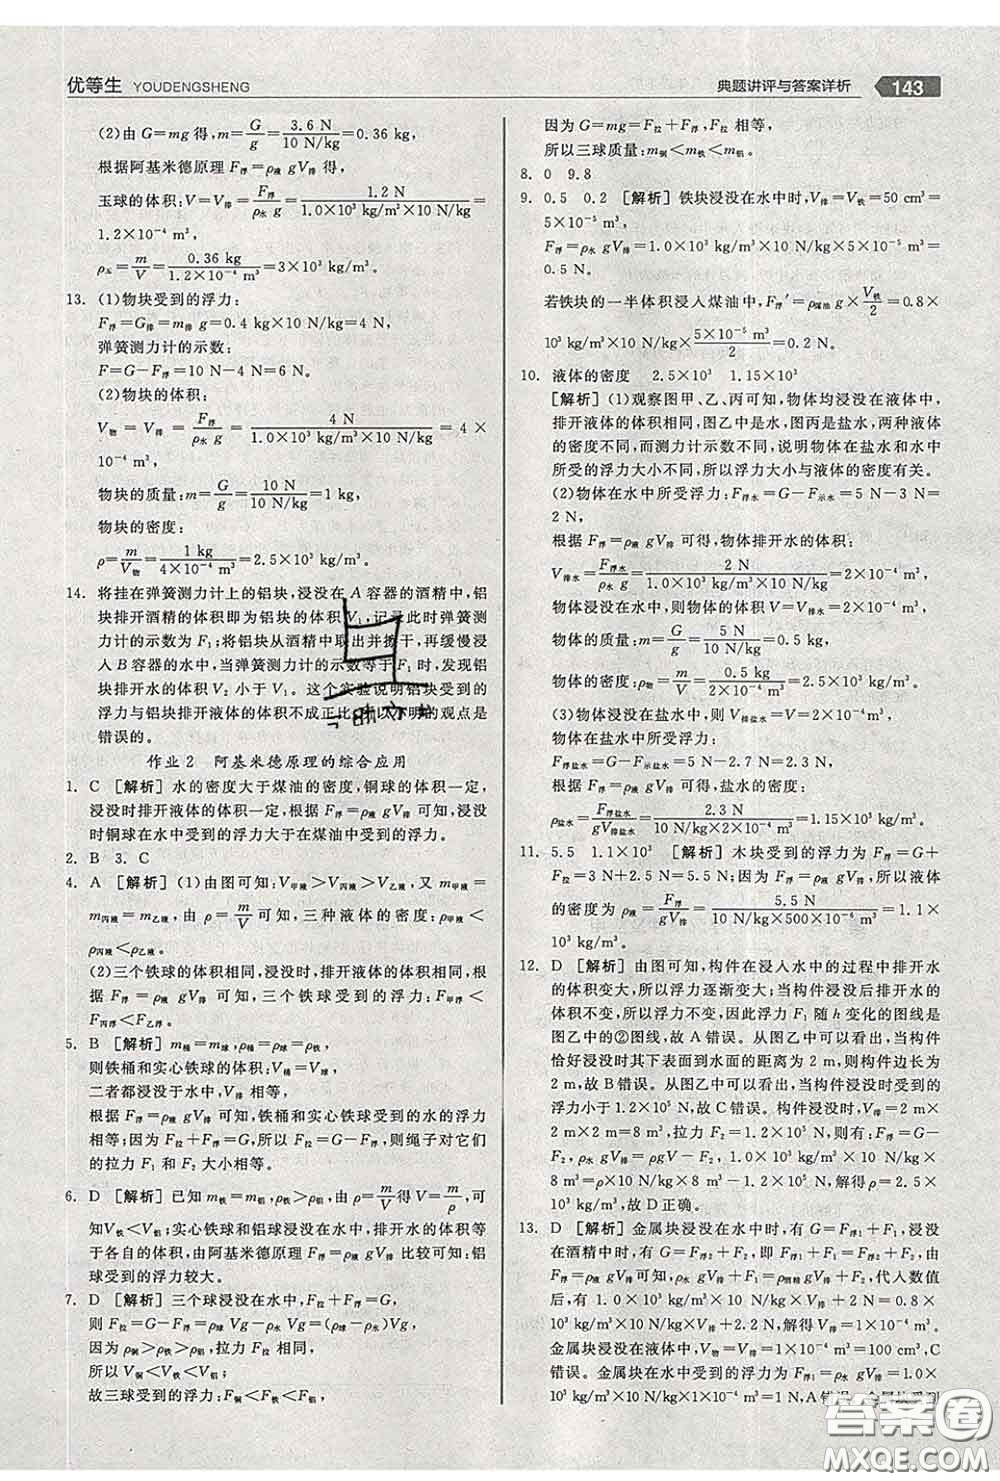 优等生 YOUDENGSHENG
典题讲评与答案详析 143
(2)由 G=mg 得,m=G/g=3.6 N/10 N/kg=0.36 kg,
根据阿基米德原理 F浮=ρ液 gV排 得,
玉球的体积:V=V排=F浮/ρ水 g=1.2 N/1.0×10³ kg/m³×10 N/kg=
1.2×10⁻⁴ m³,
ρ玉=m/V=0.36 kg/1.2×10⁻⁴ m³=3×10³ kg/m³。
13. (1)物块受到的浮力:
F浮=G排=m排 g=0.4 kg×10 N/kg=4 N,
弹簧测力计的示数:
F=G-F浮=10 N-4 N=6 N。
(2)物块的体积:
V物=V排=F浮/ρ水 g=4 N/1.0×10³ kg/m³×10 N/kg=4×
10⁻⁴ m³,
物块的质量:m=G/g=10 N/10 N/kg=1 kg,
物块的密度:
ρ=m/V物=1 kg/4×10⁻⁴ m³=2.5×10³ kg/m³。
14. 将挂在弹簧测力计上的铝块,浸没在 A 容器的酒精中,铝
块排开酒精的体积即为铝块的体积 V₁,记录此时弹簧测
力计的示数为 F₁;将铝块从酒精中取出并擦干,再缓慢浸
入 B 容器的水中,当弹簧测力计的示数等于 F₁ 时,发现铝
块排开水的体积 V₂ 小于 V₁。这个实验说明铝块受到的
浮力与铝块排开液体的体积不成正比,所以小明的观点是
错误的。
作业 2 阿基米德原理的综合应用
1. C [解析] 水的密度大于煤油的密度,铜球的体积一定,
浸没时排开液体的体积一定,根据 F浮=ρ液 gV排 可知,浸没
时铜球在水中受到的浮力大于在煤油中受到的浮力。
2. B 3. C
4. A [解析] (1)由图可知:V甲液>V丙液>V乙液,又 m甲液=
m丙液=m乙液,由 ρ=m/V可知,三种液体的密度:ρ甲液<
ρ丙液<ρ乙液。
(2)三个铁球的体积相同,浸没时,排开液体的体积相同,根
据 F浮=ρ液 gV排 可知,三个铁球受到的浮力:F甲浮<
F丙浮<F乙浮。
5. B [解析] m桶=m球,ρ桶=ρ球=ρ铁,
则铁桶和实心铁球的体积:V桶=V球,
二者都浸没于水中,V排 相等,
根据 F浮=ρ液 gV排 可知,铁桶和实心铁球受到的水的浮力
相等;因为 F拉+F浮=G,所以 F拉=G-F浮,则绳子对它们
的拉力 F₁ 和 F₂ 大小相等。
6. D [解析] 已知 m铁=m铝,ρ铁>ρ铝,由 ρ=m/V得 V=m/ρ,可
知V铁<V铝;实心铁球和铝球浸没在水中,排开水的体积等
于各自的体积,由阿基米德原理 F浮=ρ液 gV排 比较可知:铝
球受到的浮力较大。
7. D [解析] 三个球浸没在水中,F拉+F浮=G,
则 F拉=G-F浮=ρ球 Vg-ρ水 Vg=(ρ球-ρ水)Vg,
因为 ρ铜>ρ铁>ρ铝,拉力 F拉 相同,
所以 V铜<V铁<V铝,
故三球受到的浮力:F浮铜<F浮铁<F浮铝;
因为 G=mg=F拉+F浮,F拉 相等,
所以三球质量:m铜<m铁<m铝。
8. 0 9.8
9. 0.5 0.2 [解析] 铁块浸没在水中时,V排=V铁=50 cm³=
5×10⁻⁵ m³,
F浮=ρ水 gV排=1.0×10³ kg/m³×10 N/kg×5×10⁻⁵ m³=
0.5 N。
若铁块的一半体积浸入煤油中,F浮′=ρ煤油 g×V铁/2=0.8×
10³ kg/m³×10 N/kg×5×10⁻⁵ m³/2=0.2 N。
10. 液体的密度 2.5×10³ 1.15×10³
[解析] (1)观察图甲、乙、丙可知,物体均浸没在液体中,
排开液体的体积相同,图乙中是水,图丙是盐水,两种液体
的密度不同,而测力计示数不同,说明物体在盐水和水中
所受的浮力大小不同,所以浮力大小与液体的密度有关。
(2)物体在水中所受浮力:F浮水=G-F示水=5 N-3 N=
2 N,
根据 F浮=ρ液 gV排 可得,物体排开水的体积:
V排水=F浮水/ρ水 g=2 N/1.0×10³ kg/m³×10 N/kg=2×10⁻⁴ m³,
物体浸没在水中,则物体的体积:V物=V排水=2×10⁻⁴ m³,
物体的质量:m=G/g=5 N/10 N/kg=0.5 kg,
物体的密度:ρ物=m/V物=0.5 kg/2×10⁻⁴ m³=2.5×10³ kg/m³。
(3)物体浸没在盐水中,则 V排盐水=V物=2×10⁻⁴ m³,
物体在盐水中受到的浮力:
F浮盐水=G-F示盐水=5 N-2.7 N=2.3 N,
因此盐水的密度:
ρ盐水=F浮盐水/gV排盐水=2.3 N/10 N/kg×2×10⁻⁴ m³=1.15×10³ kg/m³。
11. 5.5 1.1×10³ [解析] 木块受到的浮力为 F浮=G+
F拉=3 N+2.5 N=5.5 N;因为 F浮=ρ液 gV排,所以液体
的密度为 ρ液=F浮/gV排=5.5 N/10 N/kg×500×10⁻⁶ m³=1.1×
10³ kg/m³。
12. D [解析] 由图可知,构件在浸入水中的过程中排开水
的体积变大,所以浮力逐渐变大;当构件浸没后排开水的
体积不变,所以浮力不变,因此浮力 F₁ 随 h 变化的图线是
图乙中的②图线,故 A 错误。从图乙中可以看出,当构件
恰好浸没时其下表面到水面的距离为 2 m,则构件边长为
2 m,故B错误。从图乙中可以看出,当构件浸没时受到的
浮力小于1.2×10⁵ N,故 C错误。构件浸没时,V排=8 m³,
V排=V物=8 m³,拉力 F=1.2×10⁵ N,F浮=G-F=
ρ物 gV物-1.2×10⁵ N,ρ水 gV排=ρ物 gV物-1.2×
10⁵ N,ρ水 gV排=1.0×10³ kg/m³×10 N/kg×
8 m³=ρ物×10 N/kg×8 m³-1.2×10⁵ N,解得 ρ=2.5×
10³ kg/m³,故 D正确。
13. D [解析] 金属块浸没在水中时,有 G=F浮₁+F₁,浸没
在酒精中时,有 G=F浮₂+F₂,即 F浮₁+F₁=F浮₂+F₂,由
F浮=ρ液 gV排可知,ρ水 gV排+F₁=ρ酒精 gV排+F₂,代入数值
后,有 1.0×10³ kg/m³×10 N/kg×V排+2 N=0.8×
10³ kg/m³×10 N/kg×V排+4 N,解得 V排=1×10⁻³ m³,
金属块浸没在液体中时,V物=V排=1×10⁻³ m³,故B、C
错误。当金属块在水中时受到的浮力为 F浮₁=ρ水 gV排=
1.0×10³ kg/m³×10 N/kg×1×10⁻³ m³=10 N,A错误。金属块受到
答案圈
MXQE.COM